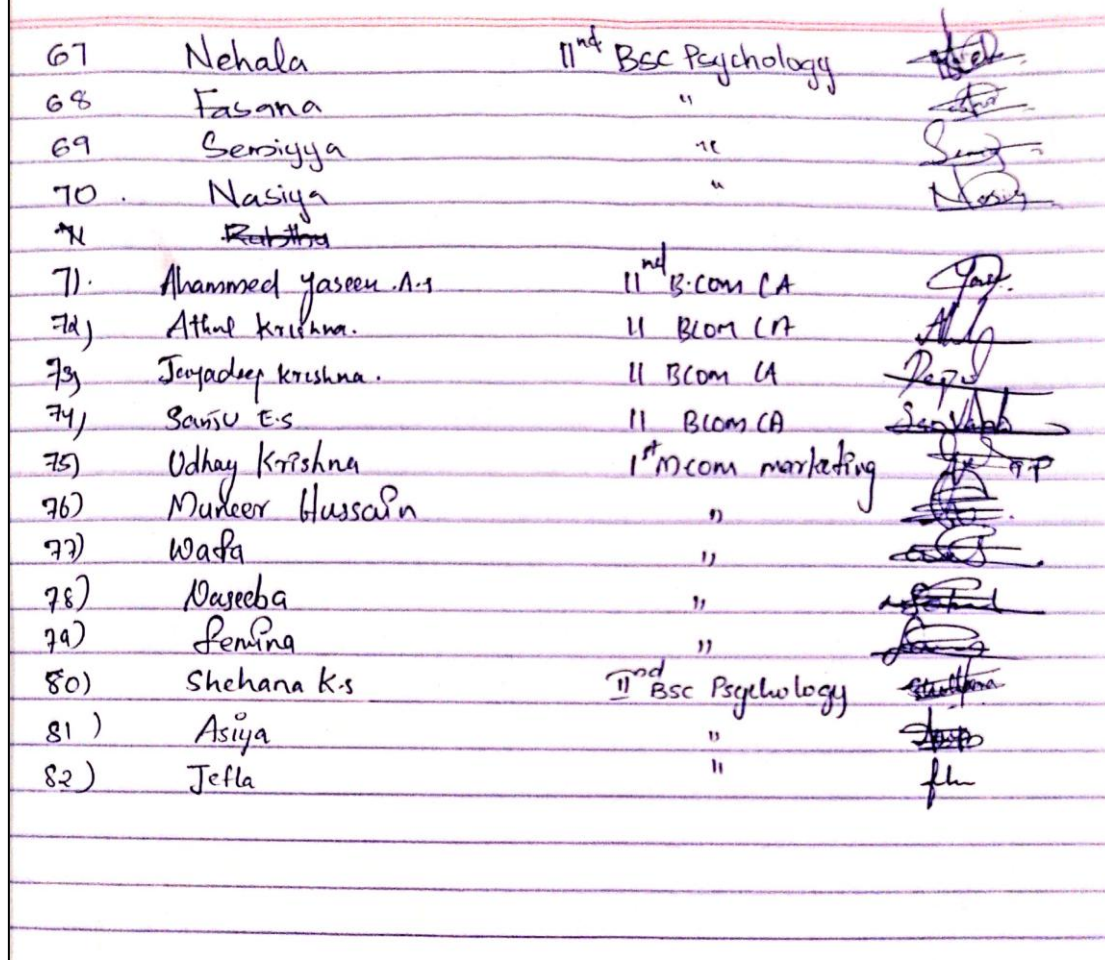 67 Nehala IInd BSC Psychology
68 Fasana "
69 Semsiyya "
70 . Nasiya " Nasiy
71. Ahammed yaseen .A.s IInd B.com CA
72) Athul Krishna. II BCOM CA
73) Jayadeep krishna. II BCOM CA
74) Sanju E.s II BCOM CA
75) Udhay Krishna 1st Mcom marketing
76) Muneer Hussain "
77) Wafa "
78) Naseeba "
79) Femina "
80) Shehana K.s IInd BSC Psychology
81) Asiya "
82) Jefla "